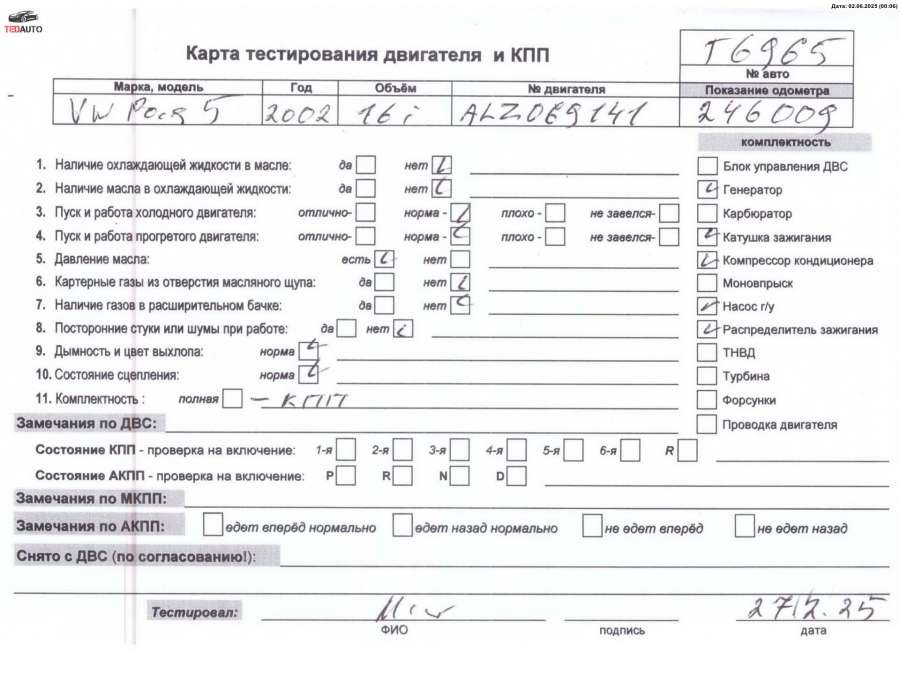 Дата: 02.06.2025 (00:06)
TEDAUTO
Карта тестирования двигателя и КПП
T6965
№ авто
Марка, модель Год Объём № двигателя Показание одометра
VW 5 2002 16 i ALZ069141 246009
комплектность
1. Наличие охлаждающей жидкости в масле: да нет
Блок управления ДВС
2. Наличие масла в охлаждающей жидкости: да нет
Генератор
3. Пуск и работа холодного двигателя: отлично- норма - плохо - не завелся-
Карбюратор
4. Пуск и работа прогретого двигателя: отлично- норма - плохо - не завелся-
Катушка зажигания
5. Давление масла: есть нет
Компрессор кондиционера
6. Картерные газы из отверстия масляного щупа: да нет
Моновпрыск
7. Наличие газов в расширительном бачке: да нет
Насос г/у
8. Посторонние стуки или шумы при работе: да нет
Распределитель зажигания
9. Дымность и цвет выхлопа: норма
ТНВД
10. Состояние сцепления: норма
Турбина
11. Комплектность : полная — КПП
Форсунки
Замечания по ДВС:
Проводка двигателя
Состояние КПП - проверка на включение: 1-я 2-я 3-я 4-я 5-я 6-я R
Состояние АКПП - проверка на включение: P R N D
Замечания по МКПП:
Замечания по АКПП: едет вперёд нормально едет назад нормально не едет вперёд не едет назад
Снято с ДВС (по согласованию!):
Тестировал:
ФИО подпись дата